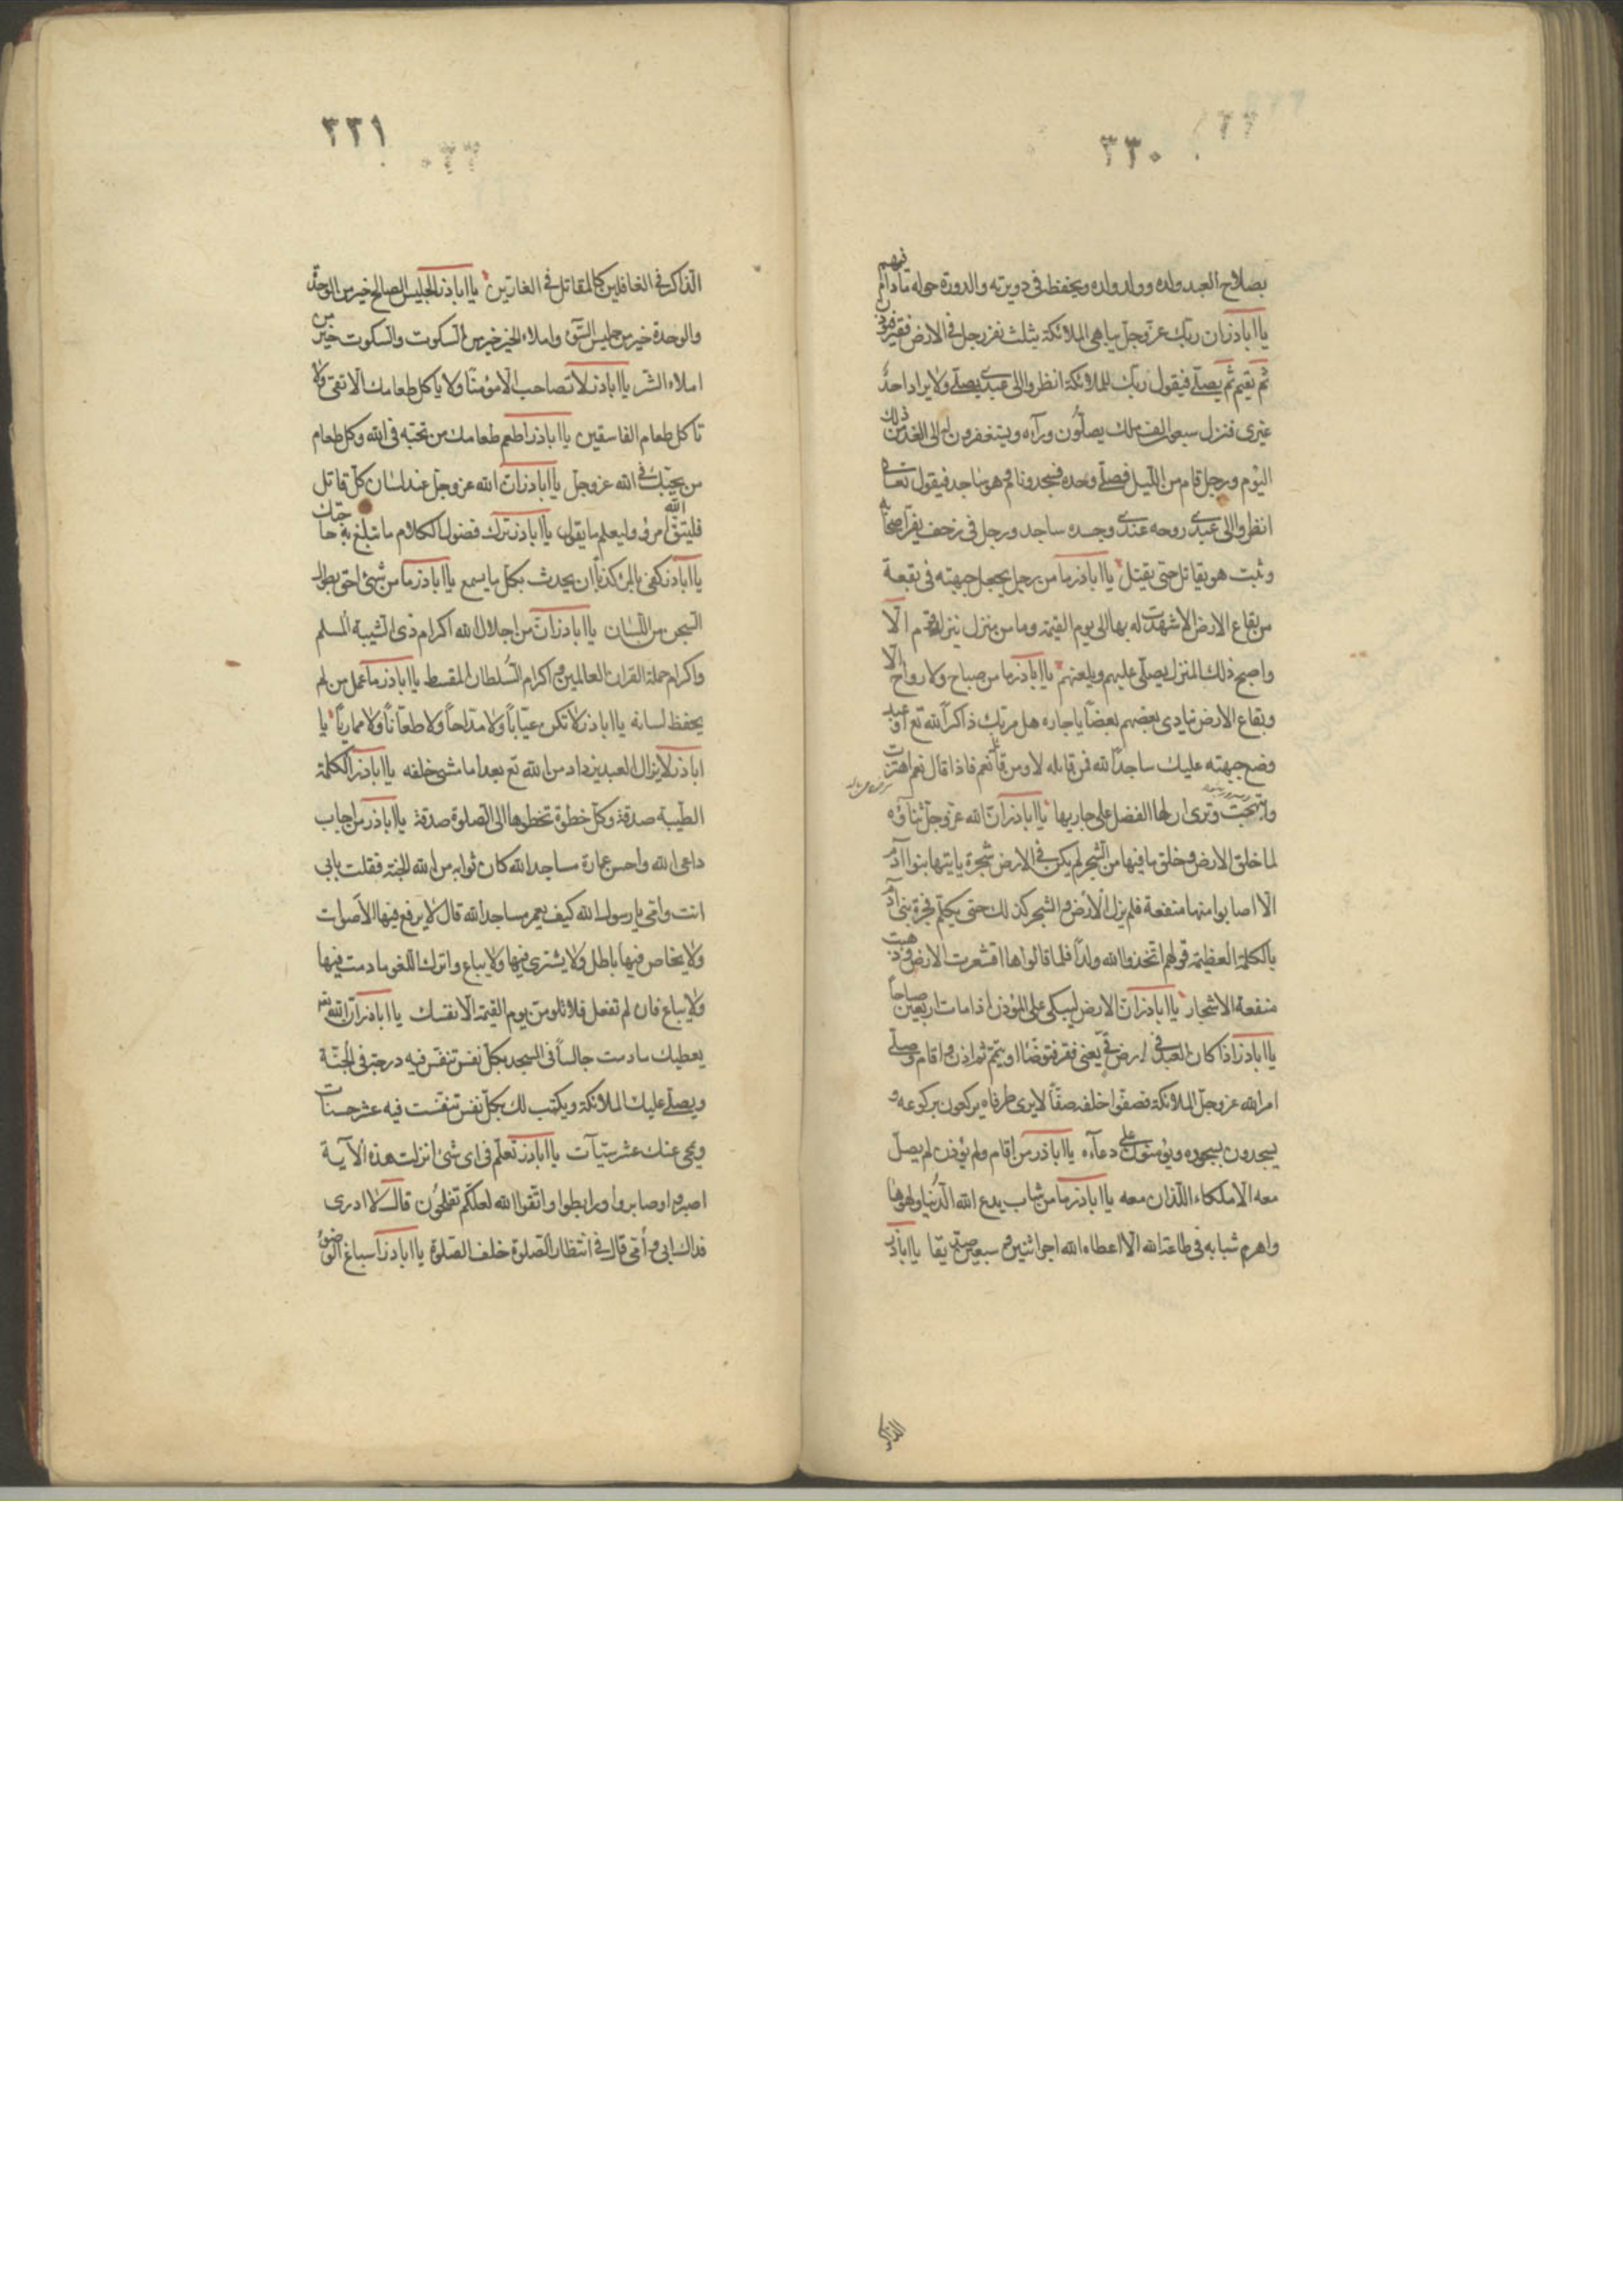 ٣٣٠
بصلاح العبد ولده وولد ولده ويحفظه في دويرته والدورة حوله مادام فيهم
يا اباذر ان ربك عز وجل يباهي الملائكة بثلث نفر رجل في الارض قفر فيؤذن
ثم يقيم ثم يصلي فيقول ربك للملائكة انظروا الى عبدي يصلي ولا يراه احد
غيري فنزل سبعون الف ملك يصلون ورآءه ويستغفرون له الى الغد من ذلك
اليوم ورجل قام من الليل فصلى وحده فسجد ونام وهو ساجد فيقول تعالى
انظروا الى عبدي روحه عندي وجسده ساجد ورجل في زحف يفر اصحابه
وثبت هو يقاتل حتى يقتل يا اباذر ما من رجل يجعل جبهته في بقعة
من بقاع الارض الا شهدت له بها الى يوم القيمة وما من منزل ينزله قوم الا
واصبح ذلك المنزل يصلي عليهم ويلعنهم يا اباذر ما من صباح ولا رواح الا
وبقاع الارض تنادي بعضهم بعضا يا جاره هل مر بك ذاكر الله تع او عبد
وضع جبهته عليك ساجدا لله فمن قايلة لا ومن قائلة نعم فاذا قال نعم اهتزت
وابتهجت وترى ان لها الفضل على جاريها يا اباذر ان الله عز وجل ثناؤه
لما خلق الارض وخلق ما فيها من الشجر لم يكن في الارض شجرة ياتيها بنوا آدم
الا اصابوا منها منفعة فلم يزل الارض والشجر كذلك حتى يتكلم فجرة بني آدم
بالكلمة العظيمة قولهم اتخذ الله ولدا فلما قالوها اقشعرت الارض وذهبت
منفعة الاشجار يا اباذر ان الارض ليبكى على المؤذن اذا مات اربعين صباحا
يا اباذر اذا كان العبد في ارض قي يعني قفر فتوضأ او يتمم ثم اذن واقام وصلى
امر الله عز وجل الملائكة فصفوا خلفه صفا لا يرى طرفاه يركعون بركوعه و
يسجدون بسجوده ويؤمنون على دعآءه يا اباذر من اقام ولم يؤذن لم يصل
معه الا ملكاه اللذان معه يا اباذر ما من شاب يدع الله الدنيا ولهوها
واهرم شبابه في طاعة الله الا اعطاه الله اجر اثنين وسبعين صديقا يا اباذر
الذاكر
٣٣١
الذاكر في الغافلين كالمقاتل في الغارين يا اباذر الجليس الصالح خير من الوحدة
والوحدة خير من جليس السوء واملاء الخير خير من السكوت والسكوت خير من
املاء الشر يا اباذر لا تصاحب الا مؤمنا ولا ياكل طعامك الا تقي ولا
تاكل طعام الفاسقين يا اباذر اطعم طعامك من تحبه في الله وكل طعام
من يحبك في الله عز وجل يا اباذر ان الله عز وجل عند لسان كل قائل
فليتق الله امرؤ وليعلم ما يقول يا اباذر اترك فضول الكلام ما تبلغ به حاجتك
يا اباذر كفى بالمرء كذبا ان يحدث بكل ما يسمع يا اباذر ما من شئ احق بطول
السجن من اللسان يا اباذر ان من اجلال الله اكرام ذي الشيبة المسلم
واكرام حملة القران العالمين واكرام السلطان المقسط يا اباذر ما عمل من لم
يحفظ لسانه يا اباذر لا تكن عيابا ولا مداحا ولا طعانا ولا مماريا يا
اباذر لا يزال العبد يزداد من الله تع بعدا ما مشى خلفه يا اباذر الكلمة
الطيبة صدقة وكل خطوة تخطوها الى الصلوة صدقة يا اباذر من اجاب
داعي الله واحسن عمارة مساجد الله كان ثوابه من الله الجنة فقلت بابي
انت وامي يا رسول الله كيف يعمر مساجد الله قال لا يرفع فيها الاصوات
ولا يخاض فيها باطل ولا يشترى فيها ولا يباع واترك اللغو ما دمت فيها
ولا يباع فان لم تفعل فلا تلومن يوم القيمة الا نفسك يا اباذر ان الله
يعطيك ما دمت جالسا في المسجد بكل نفس تنفس فيه درجة في الجنة
ويصلي عليك الملائكة ويكتب لك بكل نفس تنفست فيه عشر حسنات
ويمحى عنك عشر سيآت يا اباذر تعلم في اي شئ انزلت هذه الآية
اصبروا وصابروا ورابطوا واتقوا الله لعلكم تفلحون قال لا ادري
فداك ابي وامي قال في انتظار الصلوة خلف الصلوة يا اباذر اسباغ الوضوء